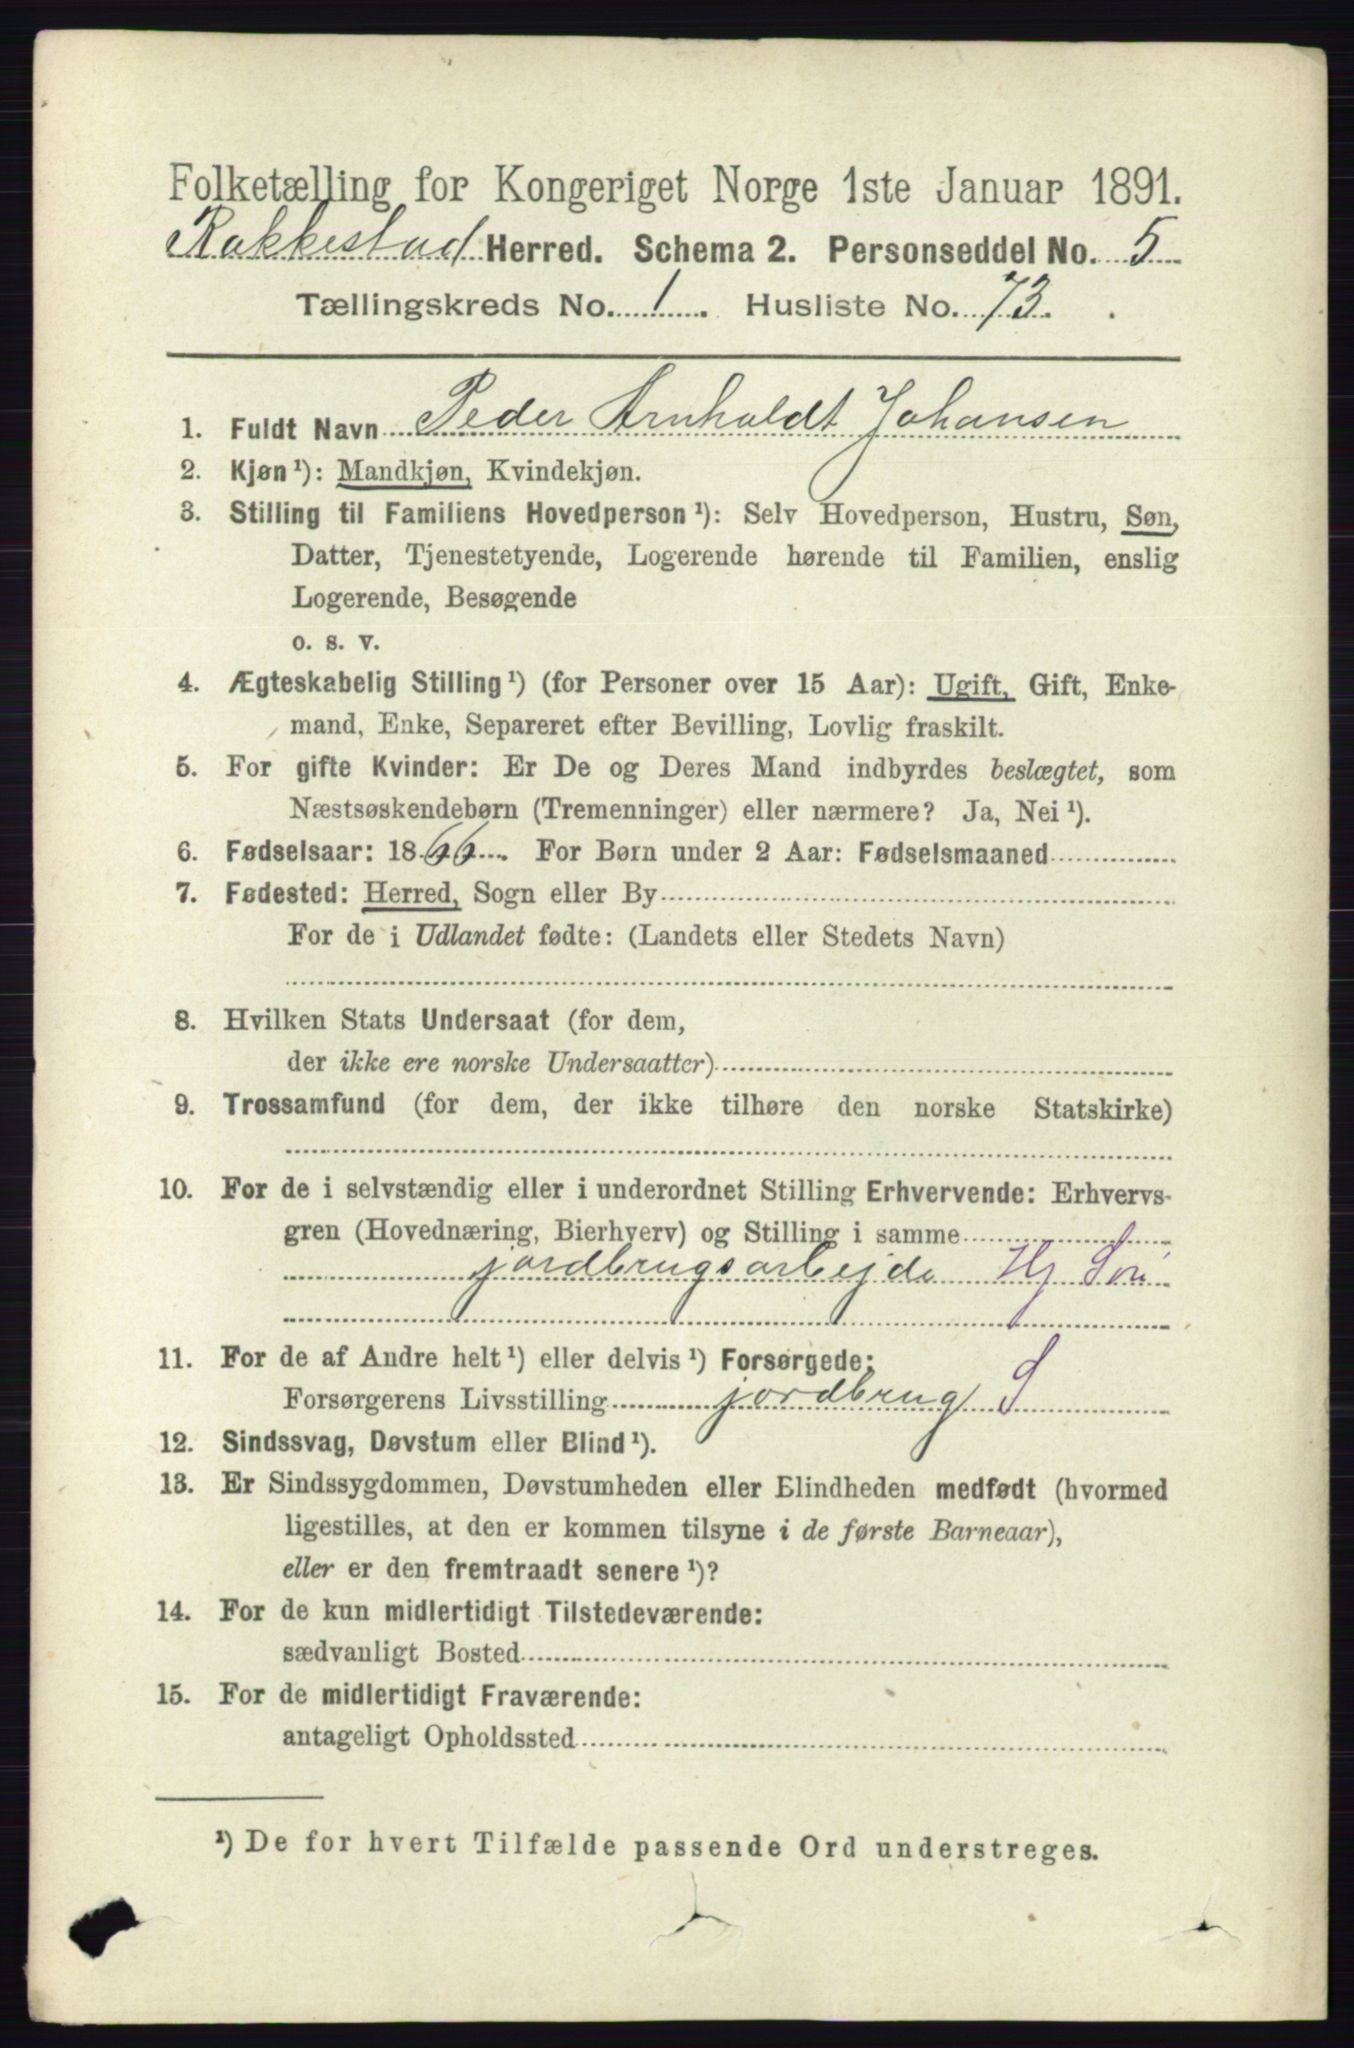 Folketælling for Kongeriget Norge 1ste Januar 1891.
Rakkestad Herred. Schema 2. Personseddel No. 5
Tællingskreds No. 1. Husliste No. 73.
1. Fuldt Navn Peder Arnholdt Johansen
2. Kjøn ¹): Mandkjøn, Kvindekjøn.
3. Stilling til Familiens Hovedperson ¹): Selv Hovedperson, Hustru, Søn,
Datter, Tjenestetyende, Logerende hørende til Familien, enslig
Logerende, Besøgende
o. s. v.
4. Ægteskabelig Stilling ¹) (for Personer over 15 Aar): Ugift, Gift, Enke-
mand, Enke, Separeret efter Bevilling, Lovlig fraskilt.
5. For gifte Kvinder: Er De og Deres Mand indbyrdes beslægtet, som
Næstsøskendebørn (Tremenninger) eller nærmere? Ja, Nei ¹).
6. Fødselsaar: 1866. For Børn under 2 Aar: Fødselsmaaned
7. Fødested: Herred, Sogn eller By
For de i Udlandet fødte: (Landets eller Stedets Navn)
8. Hvilken Stats Undersaat (for dem,
der ikke ere norske Undersaatter)
9. Trossamfund (for dem, der ikke tilhøre den norske Statskirke)
10. For de i selvstændig eller i underordnet Stilling Erhvervende: Erhvervs-
gren (Hovednæring, Bierhverv) og Stilling i samme
jordbrugsarbejde Hj Søn
11. For de af Andre helt ¹) eller delvis ¹) Forsørgede:
Forsørgerens Livsstilling jordbrug S
12. Sindssvag, Døvstum eller Blind ¹).
13. Er Sindssygdommen, Døvstumheden eller Blindheden medfødt (hvormed
ligestilles, at den er kommen tilsyne i de første Barneaar),
eller er den fremtraadt senere ¹)?
14. For de kun midlertidigt Tilstedeværende:
sædvanligt Bosted
15. For de midlertidigt Fraværende:
antageligt Opholdssted
¹) De for hvert Tilfælde passende Ord understreges.